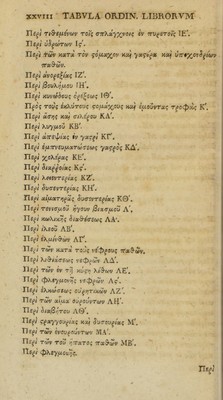 xxviii TABVLA ORDIN. LIBRORVM
Περὶ τιθεμένων τοῖς σπλάγχνοις ἐν πυρετοῖς ΙΕ΄.
Περὶ ἱδρώτων Ις΄.
Περὶ τῶν κατὰ τὸν στόμαχον καὶ γαστέρα καὶ ὑποχονδρίων
παθῶν.
Περὶ ἀνορεξίας ΙΖ΄.
Περὶ βουλίμου ΙΗ΄.
Περὶ κυνώδους ὀρέξεως ΙΘ΄.
Πρὸς τοὺς ἐκλύτους στομάχους καὶ ἐμοῦντας τροφὰς Κ΄.
Περὶ ἄσης καὶ σιέρου ΚΑ΄.
Περὶ λυγμοῦ ΚΒ΄.
Περὶ ἀπεψίας ἐν γαστρὶ ΚΓ΄.
Περὶ ἐμπνευματώσεως γαστρὸς ΚΔ΄.
Περὶ χολέρας ΚΕ΄.
Περὶ διαῤῥοίας Κς΄.
Περὶ λειεντερίας ΚΖ΄.
Περὶ δυσεντερίας ΚΗ΄.
Περὶ αἱματηρᾶς δυσεντερίας ΚΘ΄.
Περὶ τεινεσμοῦ ἤγουν βιασμοῦ Λ΄.
Περὶ κωλικῆς διαθέσεως ΛΑ΄.
Περὶ εἰλεοῦ ΛΒ΄.
Περὶ ἑλμίνθων ΛΓ΄.
Περὶ τῶν κατὰ τοὺς νέφρους παθῶν.
Περὶ λιθιάσεως νεφρῶν ΛΔ΄.
Περὶ τῶν ἐν τῇ κύστει λίθων ΛΕ΄.
Περὶ φλεγμονῆς νεφρῶν Λς΄.
Περὶ ἑλκώσεως οὐρητικῶν ΛΖ΄.
Περὶ τῶν αἷμα οὐρούντων ΛΗ΄.
Περὶ διαβήτου ΛΘ΄.
Περὶ στραγγουρίας καὶ δυσουρίας Μ΄.
Περὶ τῶν ἐνουρούντων ΜΑ΄.
Περὶ τῶν τοῦ ἥπατος παθῶν ΜΒ΄.
Περὶ φλεγμονῆς.
Περὶ